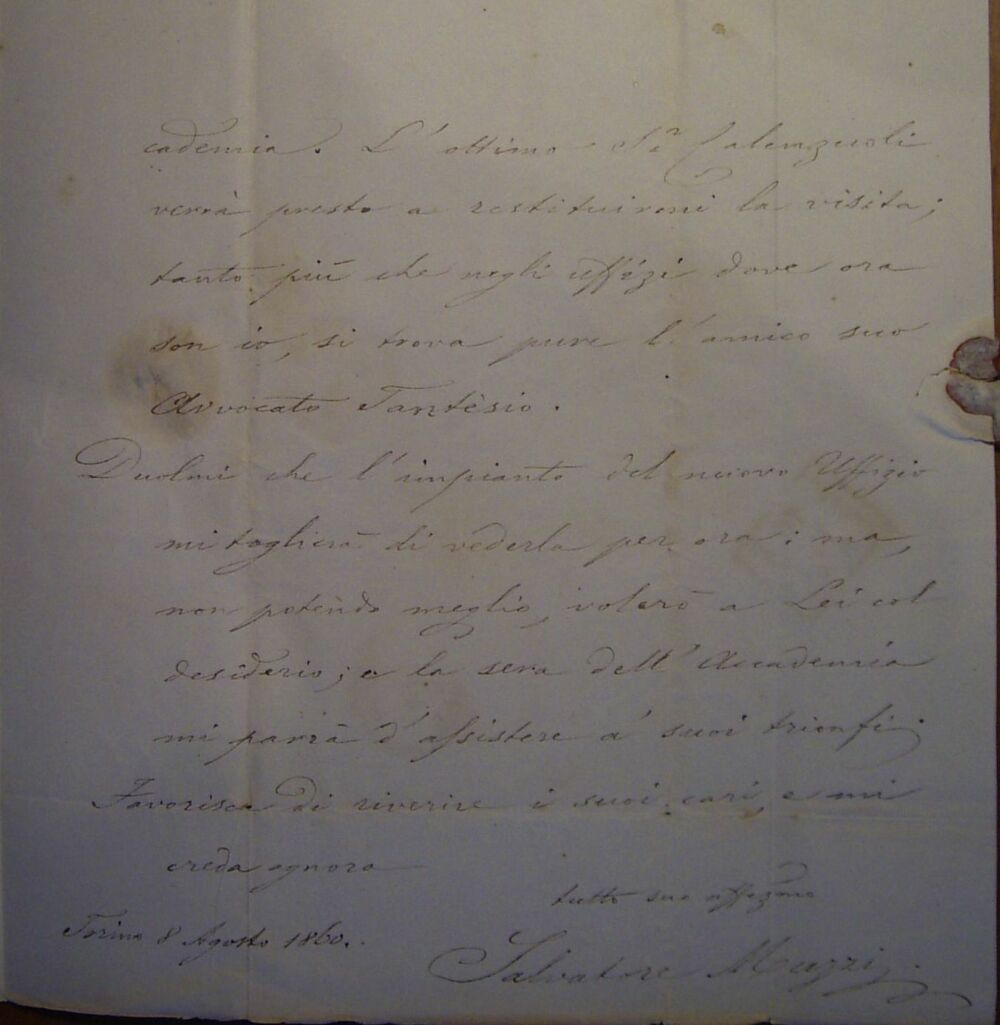 cademia. L' ottimo Sr. Calenzuoli
verrà presto a restituirmi la visita;
tanto più che negli uffizi dove ora
son io, si trova pure l' amico suo
Avvocato Tantèsio.
Duolmi che l' impianto del nuovo Uffizio
mi toglierà di vederla per ora: ma,
non potendo meglio, volerò a Lei col
desiderio; e la sera dell' Accademia
mi parrà d' assistere a' suoi trionfi.
Favorisca di riverire i suoi cari, e mi
creda ognora
tutto suo affezmo
Torino 8 Agosto 1860.
Salvatore Muzzi